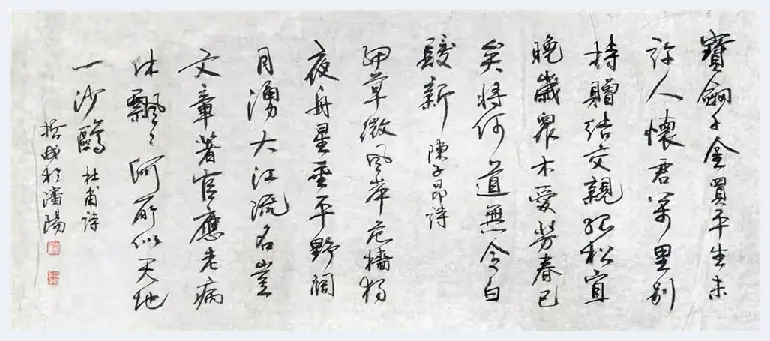 寶劍千金買平生未
許人懷君萬里別
持贈結交親孤松宜
晚歲眾木愛芳春已
矣將何道無令白
髮新 陳子昂詩
細草微風岸危檣獨
夜舟星垂平野闊
月湧大江流名豈
文章著官應老病
休飄々何所似天地
一沙鷗 杜甫詩
於瀋陽